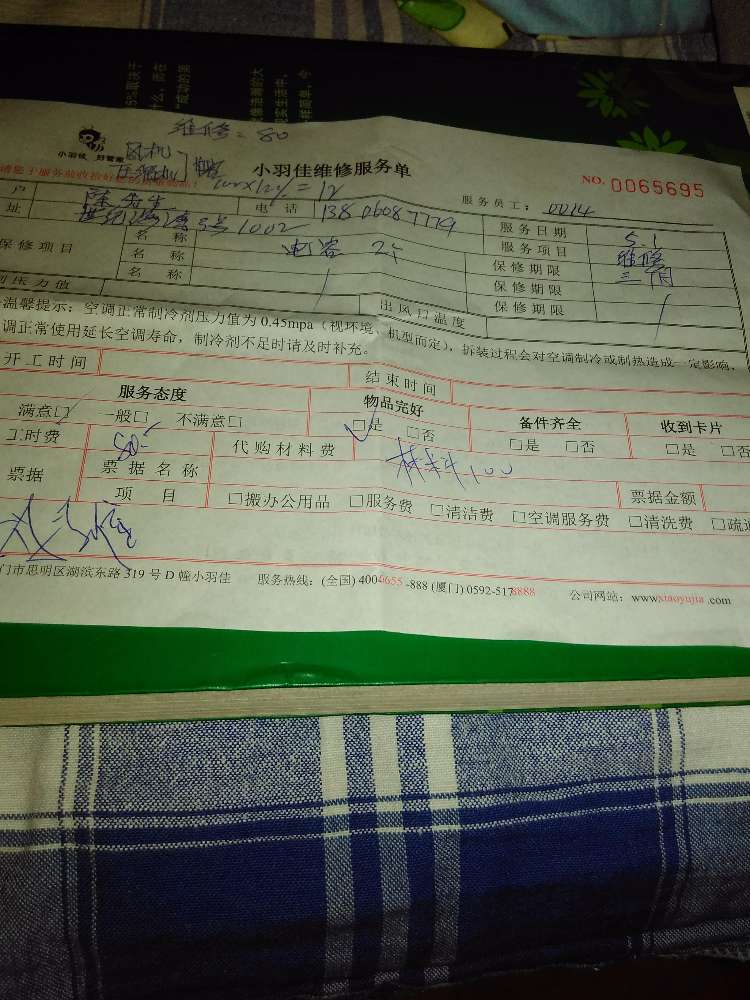 维修=80
小羽佳 好管家
风机
压缩机
小羽佳维修服务单
NO. 0065695
服务员工: 0014
户 陈先生 电话 13806087779 服务日期 5.1
址 5号1002 服务项目 维修
保修项目 名称 电容 2个 保修期限 三个月
名称 保修期限
名称 保修期限
压力值 出风口温度
温馨提示:空调正常制冷剂压力值为 0.45mpa(视环境、机型而定),拆装过程会对空调制冷或制热造成一定影响,
调正常使用延长空调寿命,制冷剂不足时请及时补充。
开工时间 结束时间
服务态度 物品完好 备件齐全 收到卡片
满意□ 一般□ 不满意□ □是 □否 □是 □否 □是 □否
工时费 80- 代购材料费 材料100
票据 票据名称 票据金额
项目 □搬办公用品 □服务费 □清洁费 □空调服务费 □清洗费 □疏通
门市思明区湖滨东路 319 号 D 幢小羽佳 服务热线:(全国) 400-6655-888 (厦门) 0592-5178888 公司网站:www.xiaoyujia.com